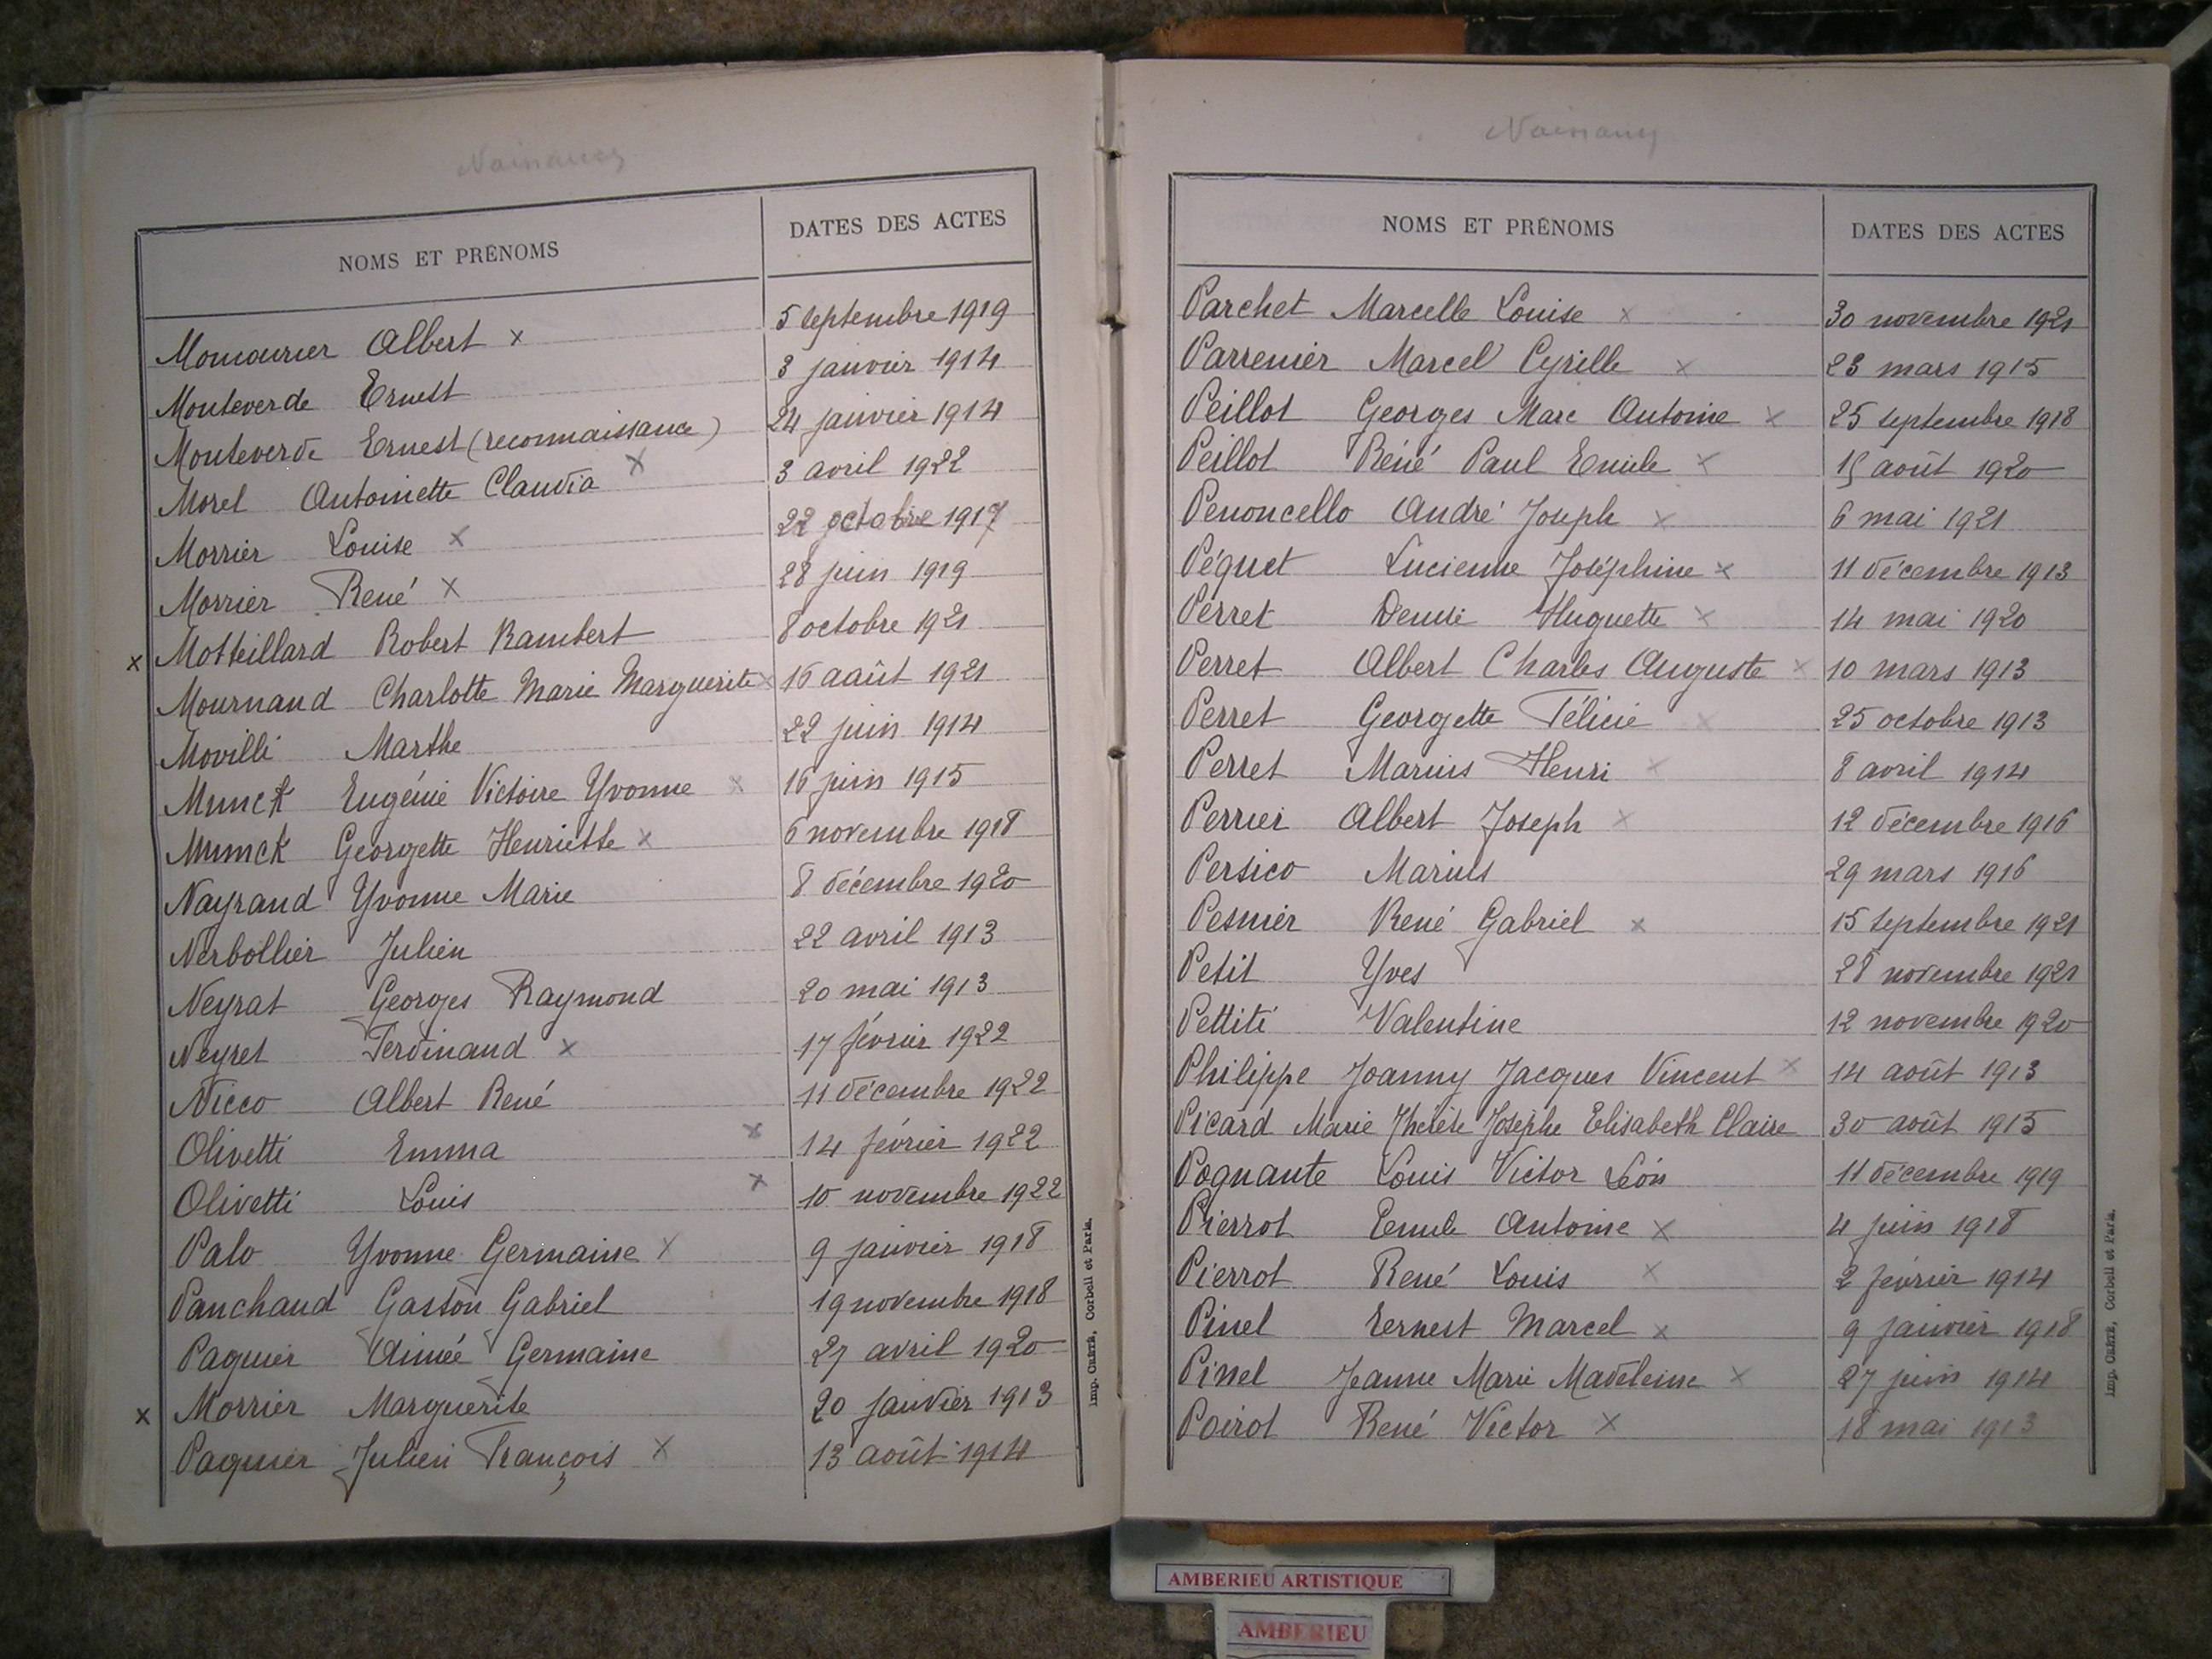 Naissances
NOMS ET PRÉNOMS DATES DES ACTES
Albert x 5 septembre 1919
Monteverde Ernest 3 janvier 1914
Monteverde Ernest (reconnaissance) 24 janvier 1914
Morel Antoinette Claudia x 3 avril 1922
Morrier Louise x 22 octobre 1917
Morrier René x 28 juin 1919
x Motteillard Robert Rambert 8 octobre 1921
Mournaud Charlotte Marie Marguerite x 16 août 1921
Movilli Marthe 22 juin 1914
Munck Eugénie Victoire Yvonne x 16 juin 1915
Munck Georgette Henriette x 6 novembre 1918
Nayrand Yvonne Marie 8 décembre 1920
Nerbollier Julien 22 avril 1913
Neyrat Georges Raymond 20 mai 1913
Neyret Ferdinand x 17 février 1922
Nicco Albert René 11 décembre 1922
Olivetti Emma x 14 février 1922
Olivetti Louis x 10 novembre 1922
Palo Yvonne Germaine x 9 janvier 1918
Panchaud Gaston Gabriel 19 novembre 1918
Paquier Aimée Germaine 27 avril 1920
x Morrier Marguerite 20 janvier 1913
Paquier Julien François x 13 août 1914
Imp. Crété, Corbeil et Paris.
Naissances
NOMS ET PRÉNOMS DATES DES ACTES
Parchet Marcelle Louise x 30 novembre 1921
Parrenier Marcel Cyrille x 23 mars 1915
Peillot Georges Marc Antoine x 25 septembre 1918
Peillot Réné Paul Emile x 15 août 1920
Penoncello André Joseph x 6 mai 1921
Péquet Lucienne Joséphine x 11 décembre 1913
Perret Denise Huguette x 14 mai 1920
Perret Albert Charles Auguste x 10 mars 1913
Perret Georgette Félicie x 25 octobre 1913
Perret Marius Henri x 8 avril 1914
Perrier Albert Joseph x 12 décembre 1916
Persico Marius 29 mars 1916
Pesnier René Gabriel x 15 septembre 1921
Petit Yves 28 novembre 1921
Pettiti Valentine 12 novembre 1920
Philippe Joanny Jacques Vincent x 14 août 1913
Picard Marie Thérèse Josèphe Elisabeth Claire 30 août 1915
Pognante Louis Victor Léon 11 décembre 1919
Pierrot Emile Antoine x 4 juin 1918
Pierrot René Louis x 2 février 1914
Pinel Eernest Marcel x 9 janvier 1918
Pinel Jeanne Marie Madeleine x 27 juin 1914
Poirot René Victor x 18 mai 1913
Imp. Crété, Corbeil et Paris.
AMBERIEU ARTISTIQUE
AMBERIEU